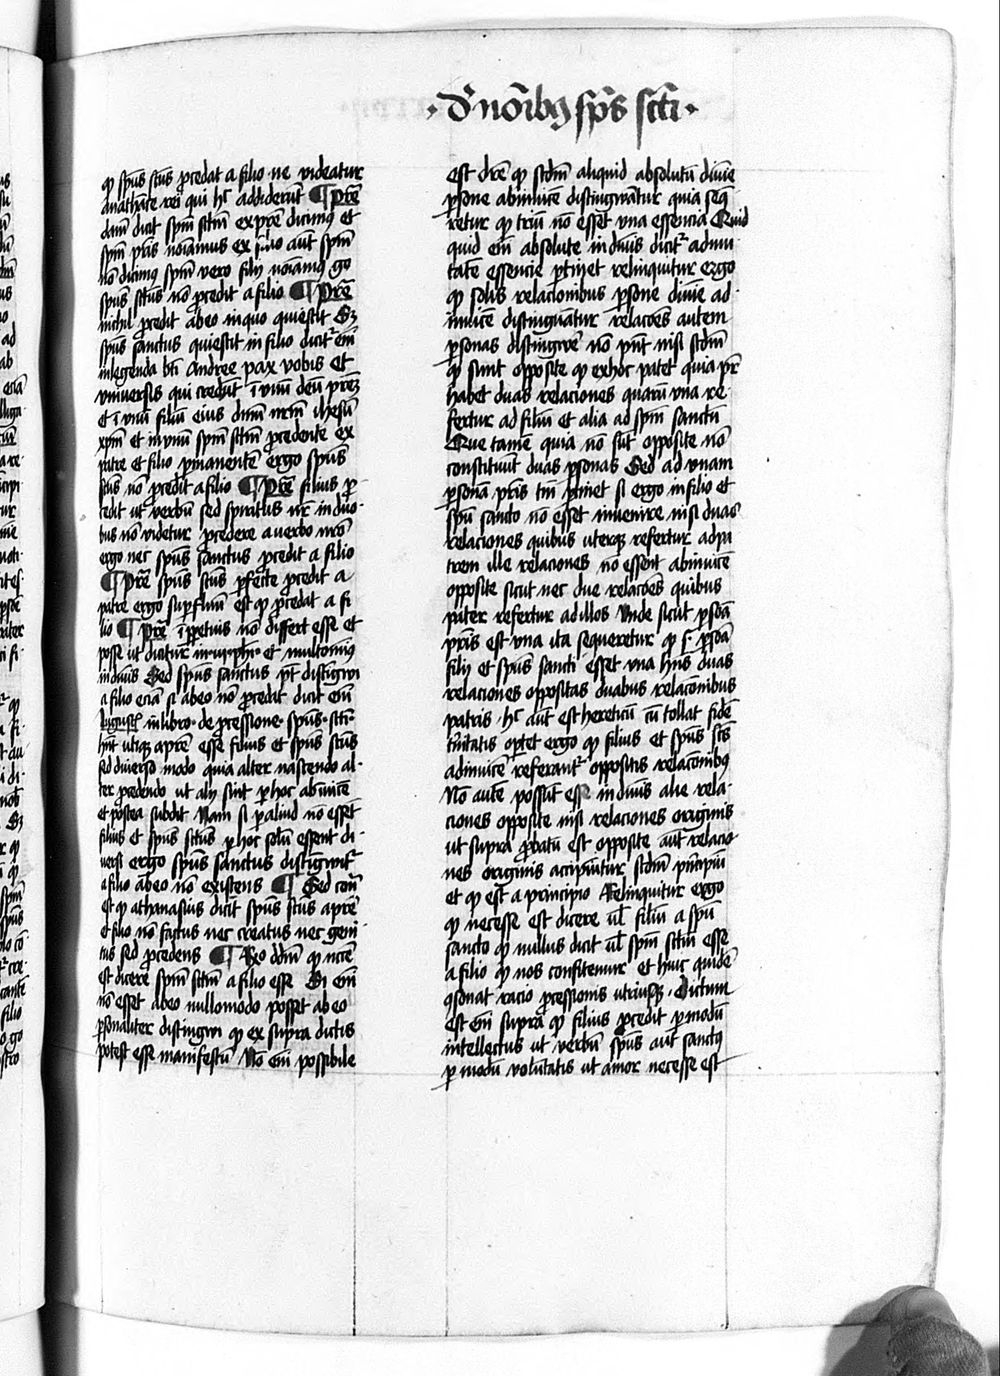 · De nōibꝫ sp̄s scti ·
ꝙ sp̄us sc̄us ꝓcedat a filio ne videatur
anathāte rei qui hͨ addiderūt ¶ Pret̄
dam̄ dicit sp̄m sc̄tm ex pr̄e dicimꝫ et
sp̄m pr̄is noīamus ex filio aūt sp̄m
nō dicimꝫ sp̄m vero filij noīamꝫ go
sp̄us sc̄tus nō ꝓcedit a filio ¶ Pret̄
nichil ꝓcedit ab eo in quo quiescit Sꝫ
sp̄us sanctus quiescit in filio dicit᷑ em̄
in legenda bt̄i Andree pax vobis et
vniuersis qui credūt ī vnū deū pr̄eꝫ
et ī vnū filiū eius dn̄m nr̄m ihesū
xp̄m et in vnū sp̄m sc̄tm ꝓcedente ex
patre et filio ꝑmanentē ergo sp̄us
sc̄us nō ꝓcedit a filio ¶ Pret̄ filius ꝓ
cedit ut verbū sed sp̄ritus nr̄ in duo
bus nō videtur ꝓcedere a verbo nr̄o
ergo nec sp̄us sanctus ꝓcedit a filio
¶ Pret̄ sp̄us sc̄us ꝑfecte ꝓcedit a
patre ergo suꝑfluū est ꝙ ꝓcedat a fi
lio ¶ Pret̄ ī ꝑpetuis nō differt esse et
posse ut dicitur in ph̄ et multomīꝫ
in diuis Sed sp̄us sanctus pt̄ distīgwi
a filio eciā si ab eo nō ꝓcedit dicit em̄
Augusti in libro de ꝓcessione sp̄us sc̄ti
hn̄t utiqꝫ a pr̄e esse filius et sp̄us sc̄tus
sed diuerso modo quia alter nascendo al
ter ꝓcedendo ut alij sint ꝑ hoc abīuicē
et postea subdit Nam si ꝑ aliud nō esset
filius et sp̄us sc̄tus ꝑ hoc solū essent di
uersi ergo sp̄us sanctus distīgwit᷑
a filio ab eo nō existens ¶ Sed cont̄
est ꝙ athanasius dicit sp̄us sc̄tus a pr̄e
et filio nō factus nec creatus nec geni
tus sed ꝓcedens ¶ R̄o dd̄m ꝙ nc̄ē
est dicere sp̄m sc̄tm a filio esse Si em̄
nō esset ab eo nullomodo posset ab eo
ꝑsonaliter distingwi ꝙ ex supra dictis
potest esse manifestū Nō em̄ possibile
est dr̄e ꝙ scd̄m aliquid absolutū diuīe
ꝑsone abinuicē distingwātur quia seq̄
retur ꝙ triū nō esset vna essencia Quid
quid em̄ absolute in diuīs dicit᷑ ad vni
tatē essencie ꝑtinet relinquitur ergo
ꝙ solis relacionibus ꝑsone diuīe ad
inuicē distinguātur relacōes autem
ꝑsonas distingwe᷑ nō pn̄t nisi scd̄m
ꝙ sunt opposite ꝙ ex hoc patet quia pr̄
habet duas relaciones quarū vna re
fertur ad filiū et alia ad sp̄m sanctū
Que tamē quia nō sūt opposite nō
constituūt duas ꝑsonas Sed ad vnam
ꝑsonā pr̄is tm̄ ꝑtinet si ergo in filio et
sp̄u sancto nō esset inuenire nisi duas
relaciones quibus uterqꝫ refertur ad pa
trem ille relaciones nō essent abinuicē
opposite sicut nec due relacōes quibus
pater refertur ad illos Vnde sicut ꝑsōa
pr̄is est vna ita sequeretur ꝙ ꝑsōa
filij et sp̄us sancti esset vna hn̄s duas
relaciones oppositas duabus relacōnibus
patris · hͨ aūt est hereticū cū tollat fidē
tn̄itatis oꝑtet ergo ꝙ filius et sp̄us sc̄ts
adinuicē referant᷑ oppositis relacōnibꝫ
Nō autē possūt esse in diuīs alie rela
ciones opposite nisi relaciones originis
ut supra ꝓbatū est opposite aūt relacio
nes originis accipiūtur scd̄m pn̄cipiū
et ꝙ est a principio Relinquitur ergo
ꝙ necesse est dicere ul̄ filiū a sp̄u
sancto ꝙ nullus dicit ul̄ sp̄m sc̄tm esse
a filio ꝙ nos confitemur et huic quidē
ꝯsonat racio ꝓcessionis utriusqꝫ · Dictum
est em̄ supra ꝙ filius ꝓcedit ꝑ modū
intellectus ut verbū sp̄us aūt sanctꝫ
ꝑ modū volūtatis ut amor necesse est